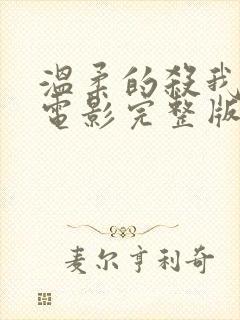 溫柔的殺我
電影完整版
麦尔亨利奇